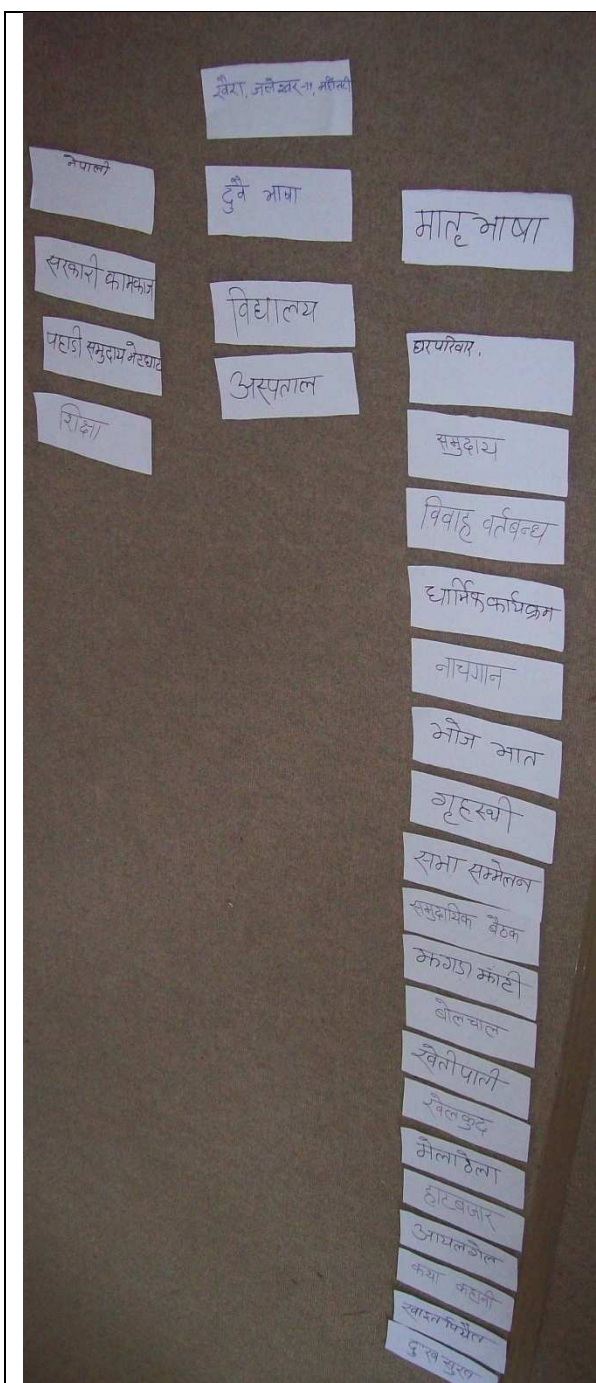 खैरा, जलेश्वर-११, महोत्तरी
नेपाली
सरकारी कामकाज
पहाडी समुदाय भेटघाट
शिक्षा
दुवै भाषा
विद्यालय
अस्पताल
मातृ भाषा
घर परिवार,
समुदाय
विवाह वर्तबन्ध
धार्मिक कार्यक्रम
नाचगान
भोज भात
गृहस्थी
सभा सम्मेलन
समुदायिक बैठक
झगडा झाँटी
बोलचाल
खेतीपाती
खेलकुद
मेला ठेला
हाटबजार
आयलगेल
कथा कहानी
खाइनपियैत
दुःख सुख